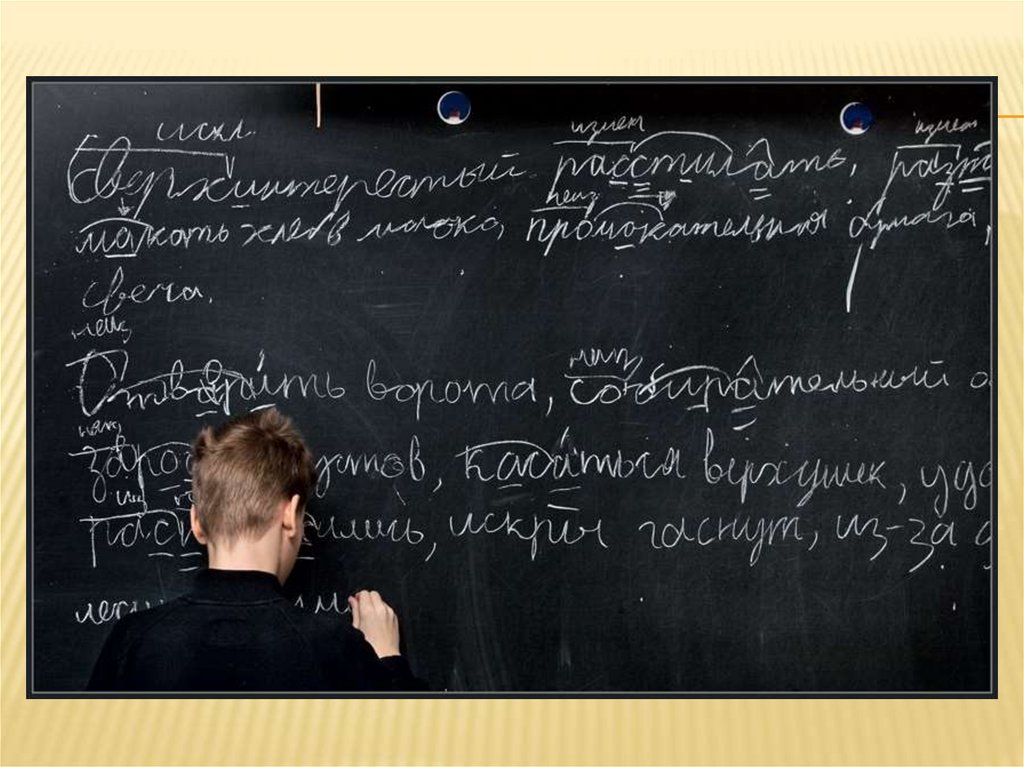 искл. измен измен
Сверхинтересный. расстилать, разж
неиз
макать хлеб в молоко, промокательная бумага,
свеча.
неиз неиз
Отворить ворота, собирательный о
неиз
заро устов, касаться верхушек, уда
рас ились, искры гаснут, из-за